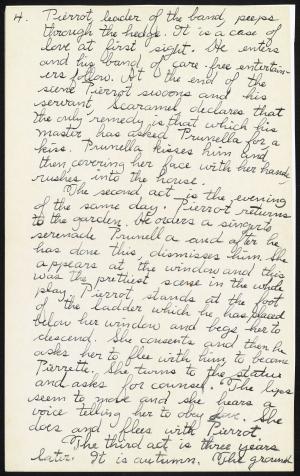 4. Pierrot, leader of the band, peeps
through the hedge. It is a case of
love at first sight. He enters
and his band of care-free entertain-
ers follow. At the end of the
scene Pierrot swoons and his
servant, Scaramel declares that
the only remedy is that which his
master has asked Prunella for a
kiss. Prunella kisses him and
then covering her face with her hands,
rushes into the house.
The second act is the evening
of the same day. Pierrot returns
to the garden. He orders a singer to
serenade Prunella and after he
has done this, dismisses him. She
appears at the window and this
was the prettiest scene in the whole
play. Pierrot stands at the foot
of the ladder which he has placed
below her window and begs her to
descend. She consents and then he
asks her to flee with him, to become
Pierrette. She turns to the statue
and asks for counsel. The lips
seem to move and she hears a
voice telling her to obey love. She
does and flees with Pierrot.
The third act is three years
later. It is autumn. The ground